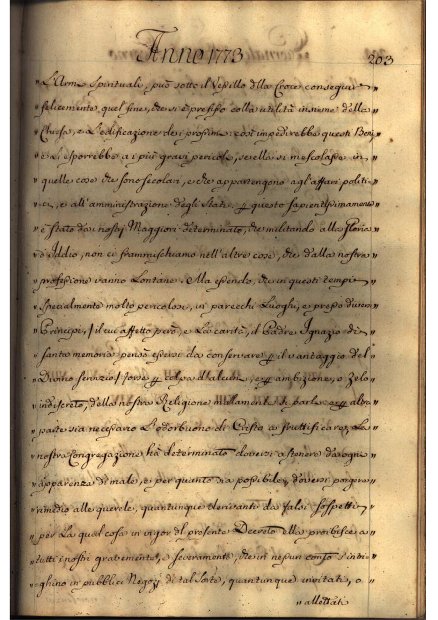 Anno 1773
203
„ L'Armi Spirituali, può sotto il Vesillo d'lla Croce conseguir „
„ felicemente quel fine, che si è prefisso colla utilità insieme della „
„ Chiesa, e L'edificazione de prossimi: così impedirebbe questi Beni „
„ e si esporrebbe a i più gravi pericoli, se ella si mescolasse in „
„ quelle cose che sono secolari, e che appartengono agl'affari politi „
„ ci, e all'amministrazione degli Stati. questo sapientissimamente
„ è stato da i nostri Maggiori diterminato, che militando alla Gloria
„ d'Iddio, non ci frammischiamo nell'altre cose, che dalla nostra
„ professione vanno Lontane. Ma essendo, che in questi tempi „
„ Specialmente molto pericolosi, in parecchi Luoghi, e presso diversi
„ Principi, il cui affetto però, e La carità, il Padre Ignazio di „
„ santa memoria pensò essersi da conservare il vantaggio del „
„ Divino servizio, forse colpa d'alcuni, e ambizione, o zelo „
„ indiscreto, della nostra Religione malamente si parla e altra
„ parte sia necessario L'odor buono di Cristo a fruttificare; La
„ nostra Congregazione hà determinato doversi astenere da ogni „
„ apparenza di male, e per quanto sia possibile, doversi porgere
„ rimedio alle querele, quantunque derivanti da falsi sospetti. „
„ per La qual cosa in vigor del presente Decreto ella proibisce a
„ tutti i nostri gravemente, e severamente, che in nessun conto s'intri „
„ ghino in pubblici Negozi di tal sorte, quantunque invitati, o „
„ allettati